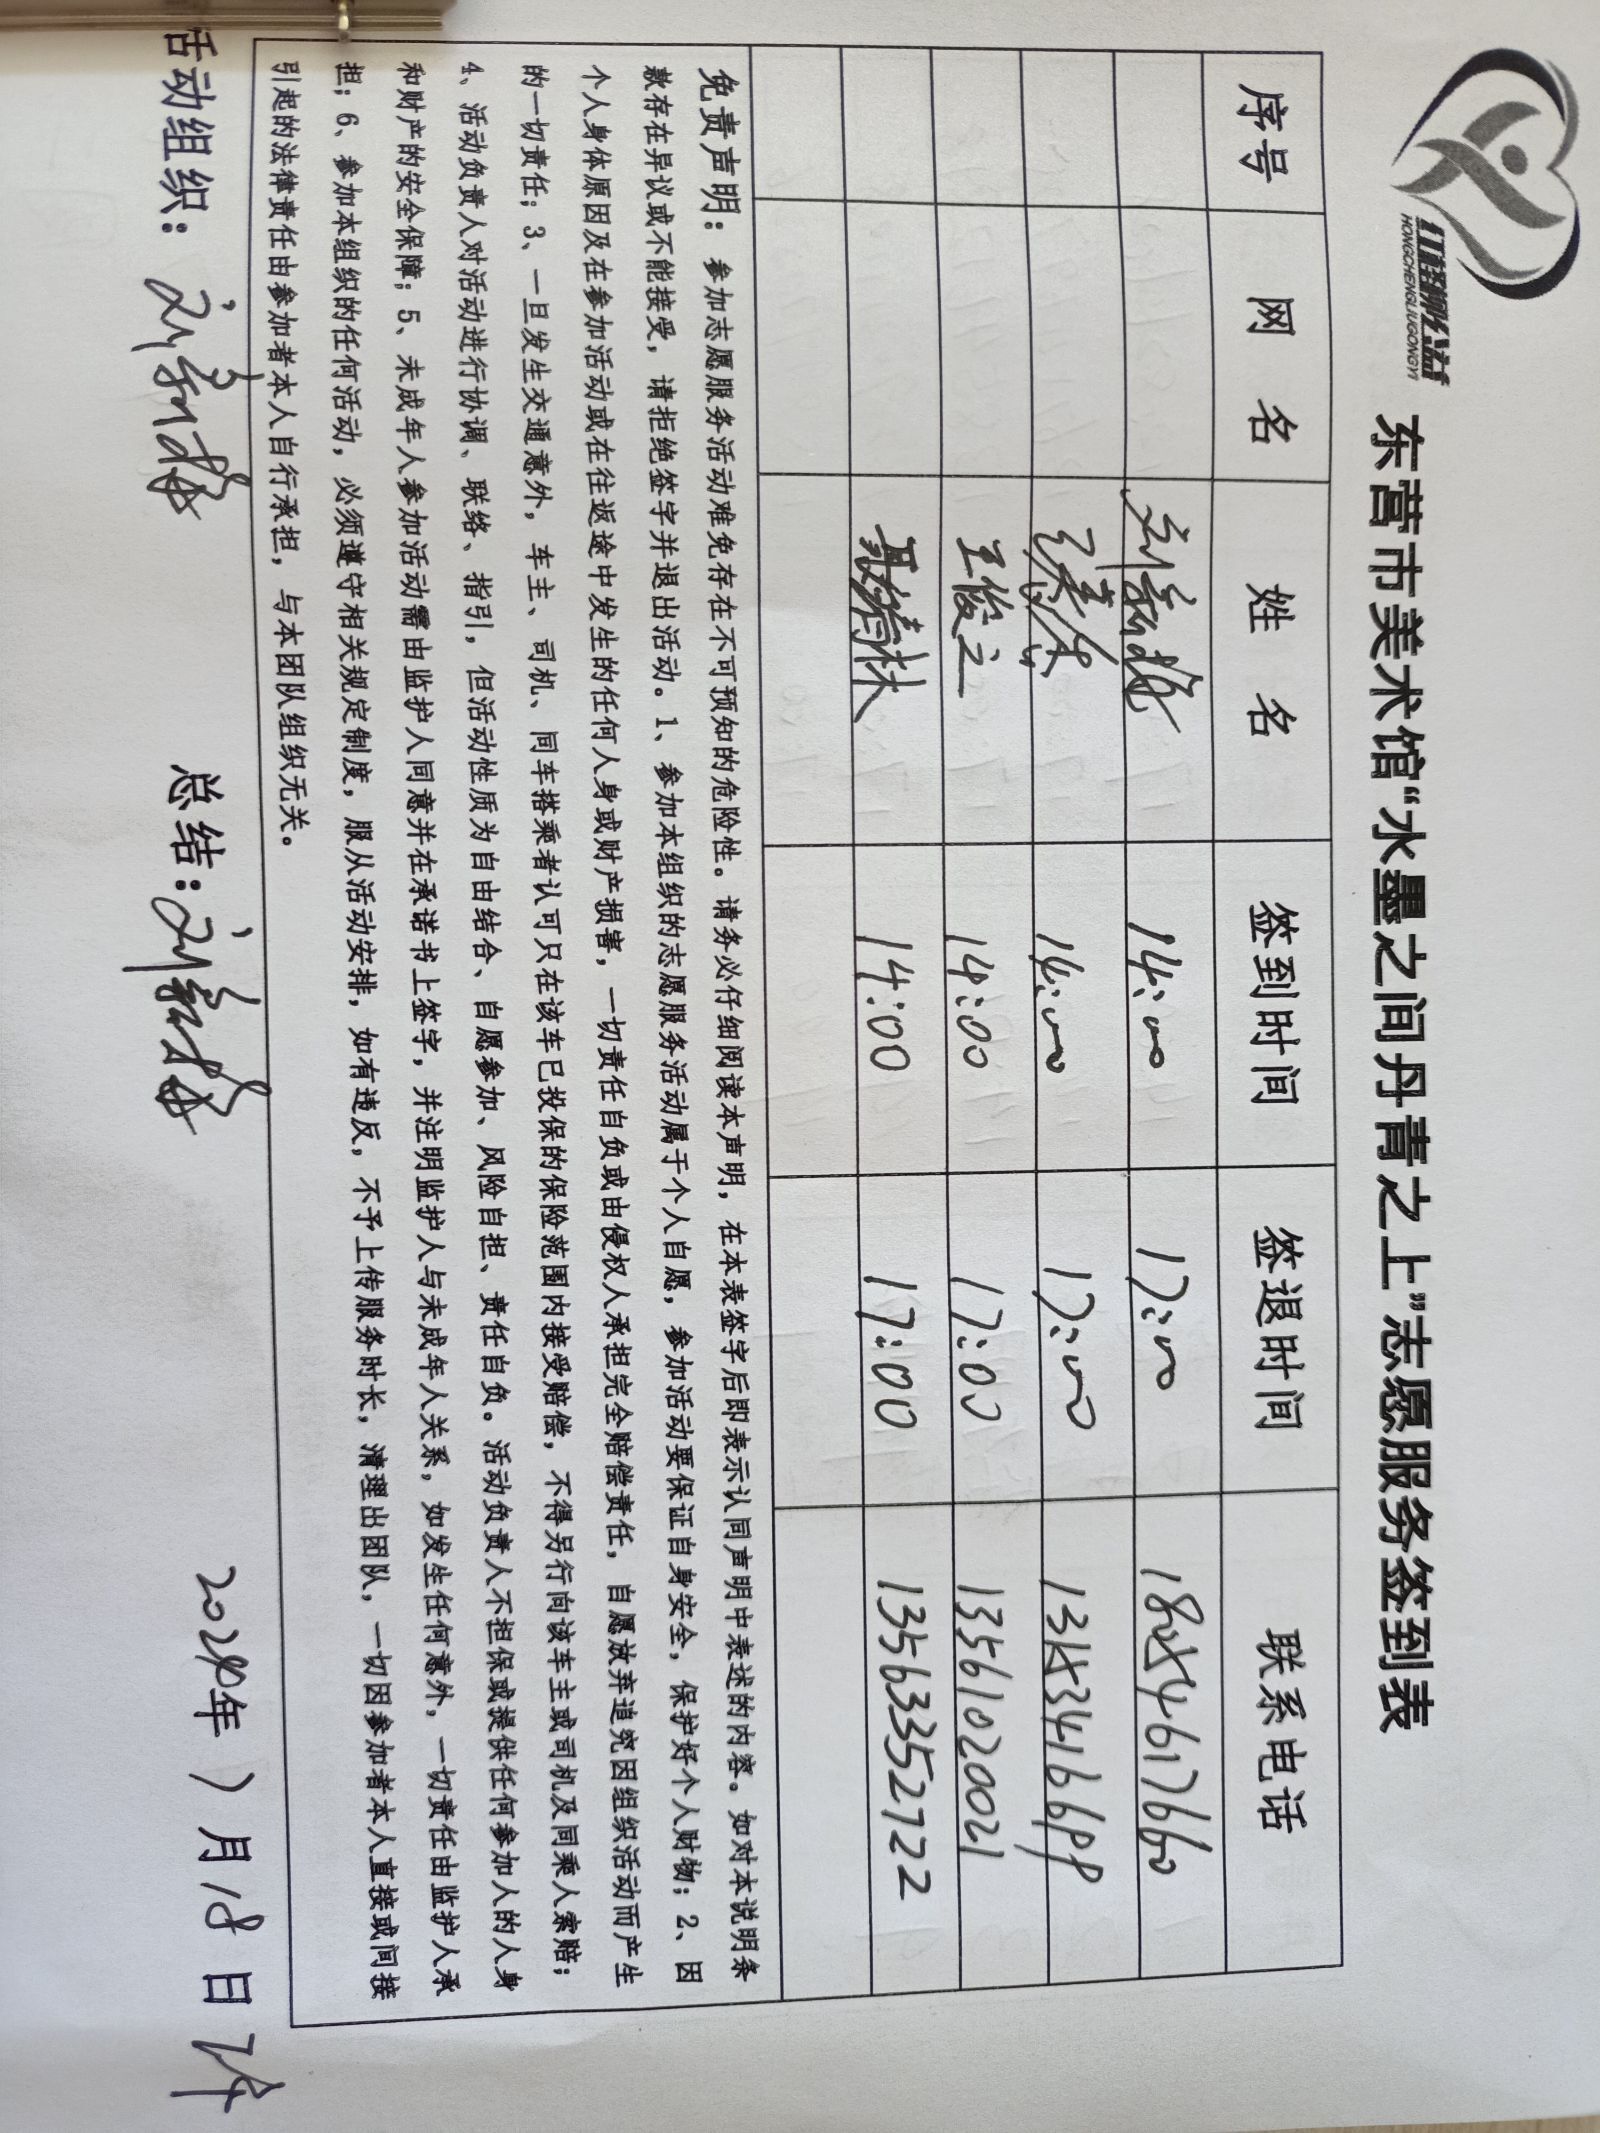 红橙柳公益
HONGCHENGLIUGONGYI
东营市美术馆“水墨之间丹青之上”志愿服务签到表
序号 网 名 姓 名 签到时间 签退时间 联系电话
14:00 17:00
14:00 17:00
王俊之 14:00 17:00 13561020021
14:00 17:00 13563352722
免责声明：参加志愿服务活动难免存在不可预知的危险性。请务必仔细阅读本声明，在本表签字后即表示认同声明中表述的内容。如对本说明条
款存在异议或不能接受，请拒绝签字并退出活动。1、参加本组织的志愿服务活动属于个人自愿，参加活动要保证自身安全，保护好个人财物；2、因
个人身体原因及在参加活动或在往返途中发生的任何人身或财产损害，一切责任自负或由侵权人承担完全赔偿责任，自愿放弃追究因组织活动而产生
的一切责任；3、一旦发生交通意外，车主、司机、同车搭乘者认可只在该车已投保的保险范围内接受赔偿，不得另行向该车主或司机及同乘人索赔；
4、活动负责人对活动进行协调、联络、指引，但活动性质为自由结合、自愿参加、风险自担、责任自负。活动负责人不担保或提供任何参加人的人身
和财产的安全保障；5、未成年人参加活动需由监护人同意并在承诺书上签字，并注明监护人与未成年人关系，如发生任何意外，一切责任由监护人承
担；6、参加本组织的任何活动，必须遵守相关规定制度，服从活动安排，如有违反，不予上传服务时长，清理出团队，一切因参加者本人直接或间接
引起的法律责任由参加者本人自行承担，与本团队组织无关。
活动组织： 总结： 年 月18日